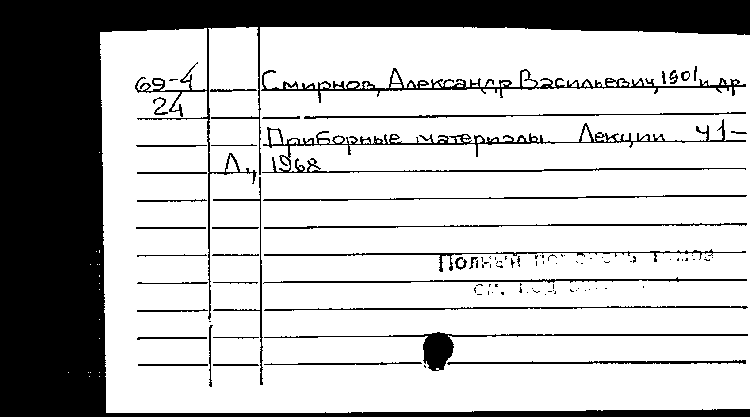 69-4/24
Смирнов, Александр Васильевич, 1901 и др
Приборные материалы. Лекции Ч1-
Л., 1968
Полный перечень томов
см. под